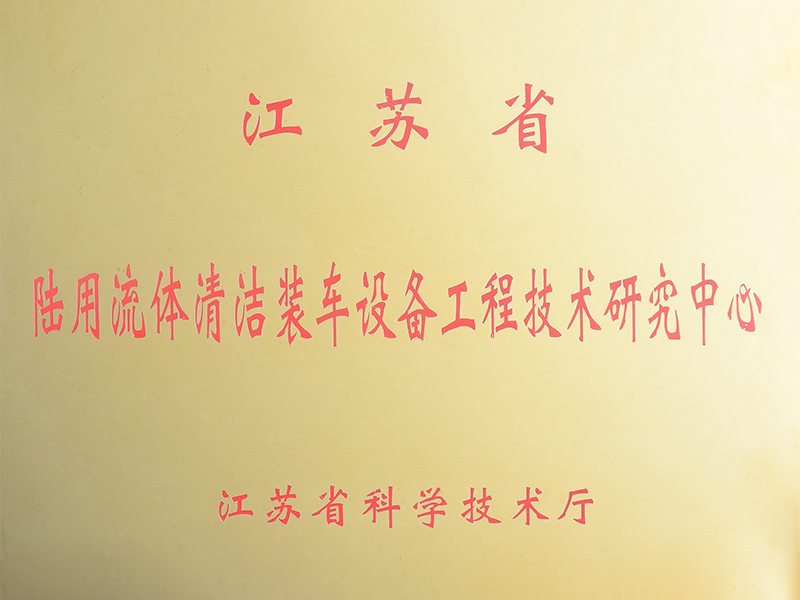 江苏省
陆用流体清洁装车设备工程技术研究中心
江苏省科学技术厅